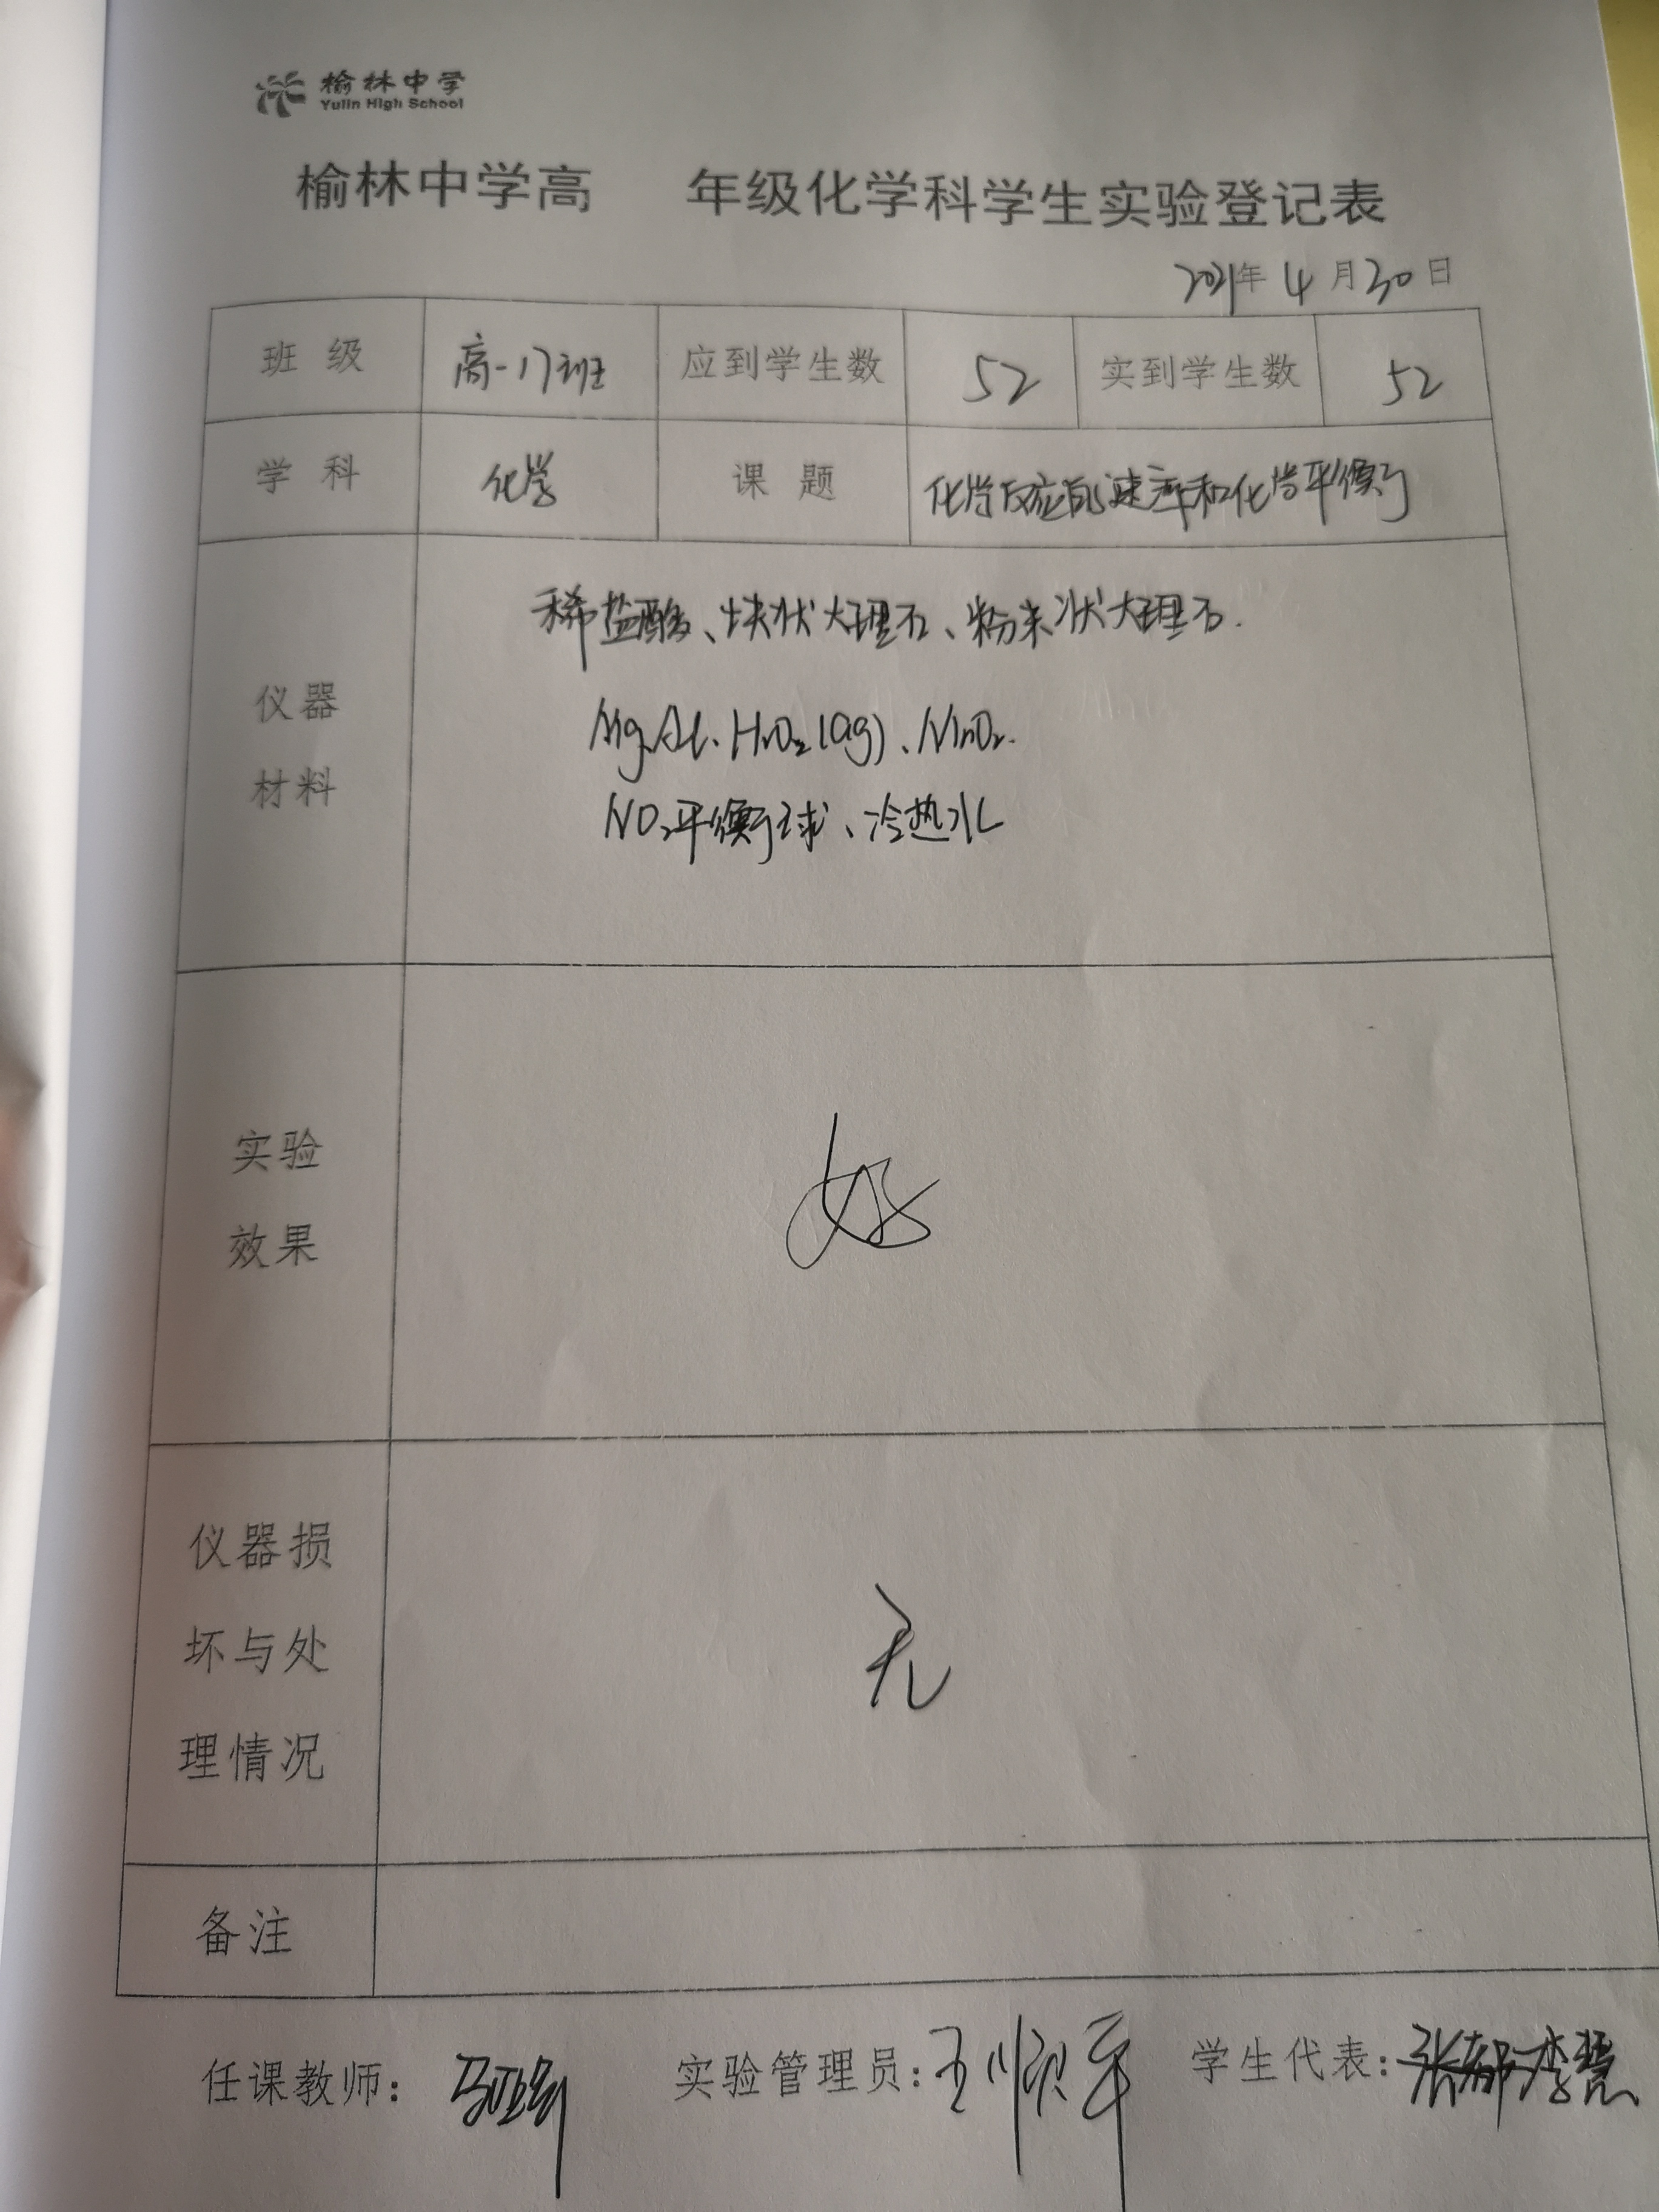 榆林中学
Yulin High School
榆林中学高 年级化学科学生实验登记表
2021年4月30日
班级 高一17班 应到学生数 52 实到学生数 52
学科 化学 课题 化学反应的速率和化学平衡
仪器
材料
稀盐酸、块状大理石、粉末状大理石.
Mg、Al、H₂O₂(aq)、MnO₂.
NO₂平衡球、冷热水
实验
效果
好
仪器损
坏与处
理情况
无
备注
任课教师: 实验管理员: 王顺军 学生代表: